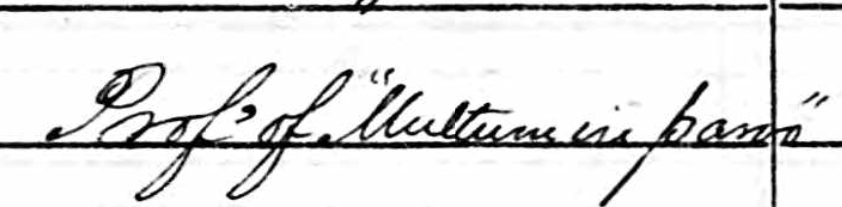 Prof. of "Multum in parvo"